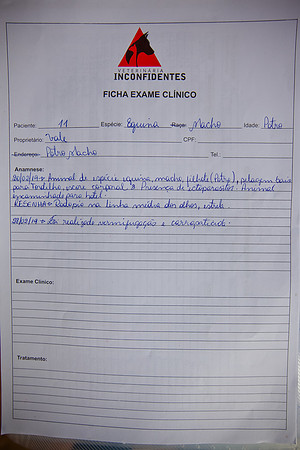 VETERINÁRIA
INCONFIDENTES
FICHA EXAME CLÍNICO
Paciente: 11 Espécie: Equina Raça: Macho Idade: Potro
Proprietário: Vale CPF:
Endereço: Potro Macho Tel.:
Anamnese:
Animal de espécie equina, macho, filhote (Potro), pelagem baio
para Tordilho, escore corporal 3. Presença de ectoparasitos. Animal
encaminhado para hotel.
RESENHA: Rodopio na linha média dos olhos, estrela.
Foi realizado vermifugação e carrapaticida.
Exame Clínico:
Tratamento: